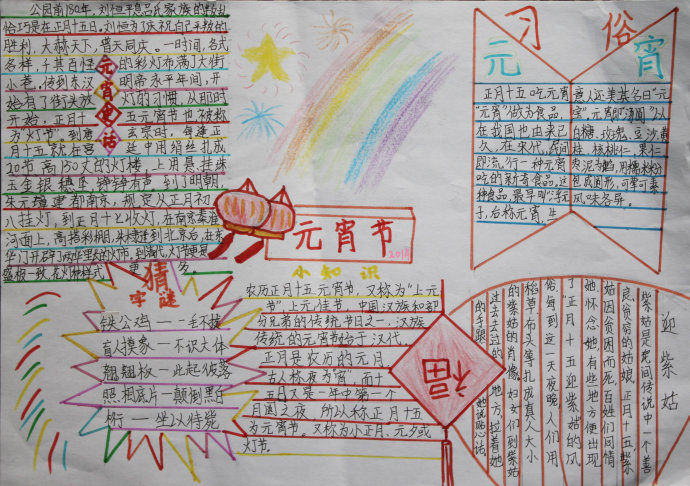 公园前180年，刘恒平息吕氏家族的叛乱
恰巧是在正月十五日，刘恒为了庆祝自己平叛的
胜利，大赦天下，普天同庆。一时间，各式
各样，千其百怪的彩灯布满了大街
小巷。传到东汉明帝永平年间，开
始有了街头放灯的习惯，从那时
开始，正月十五元宵节也被称
为“灯节”。到唐玄宗时，每逢正
月十五就在宫廷中用绢丝扎成
20节高150丈的灯楼
玉金银穗
朱元璋建都南京，规定从正月初
八挂灯，到正月十七收灯，在南京秦淮
河面上，
元宵夜话
元宵习俗
正月十五吃元宵
“元宵”做为食品，
在我国也由来已
久，在宋代，民间
即流行一种元宵
吃的新奇食品，这
种食品，最早叫
子，后称元宵，生
意人还美其名曰“元
宝”。元宵即“汤圆”以
白糖、玫瑰、豆沙黄
桂、核桃仁、果仁
枣泥为馅，用糯米粉
包成圆形，可荤可素
风味各异。
元宵节
小知识
农历正月十五元宵节，又称为“上元
节”，上元佳节，中国汉族和部
分兄弟的传统节日之一，汉族
传统的元宵节始于汉代，
正月是农历的元月
古人称夜为“宵”，而十
五日又是一年中第一个
月圆之夜，所以称正月十五
为元宵节。又称为小正月、元夕或
灯节。
福
猜字谜
铁公鸡——一毛不拔
盲人摸象——不识大体
翘翘板——此起彼落
照相底片——颠倒黑白
桥——坐以待毙
迎紫姑
紫姑是民间传说中一个善
良、贫穷的姑娘，正月十五，紫
姑因贫困而死，百姓们同情
她、怀念她，有些地方便出现
了正月十五迎紫姑的风
俗，每到这一天夜晚，人们用
稻草、布头等扎成真人大小
的紫姑的肖像，妇女们到紫姑